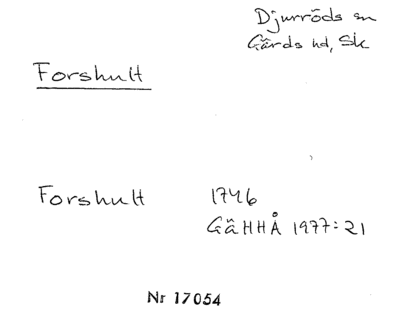 Djurröds sn
Gärds hd, Sk
Forshult
Forshult 1746
GäHHÅ 1977:21
Nr 17054